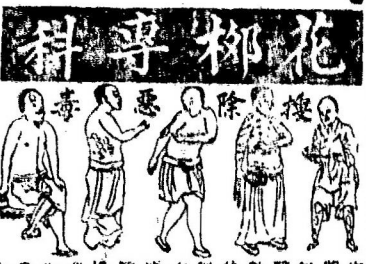 花柳專科
搜除惡毒